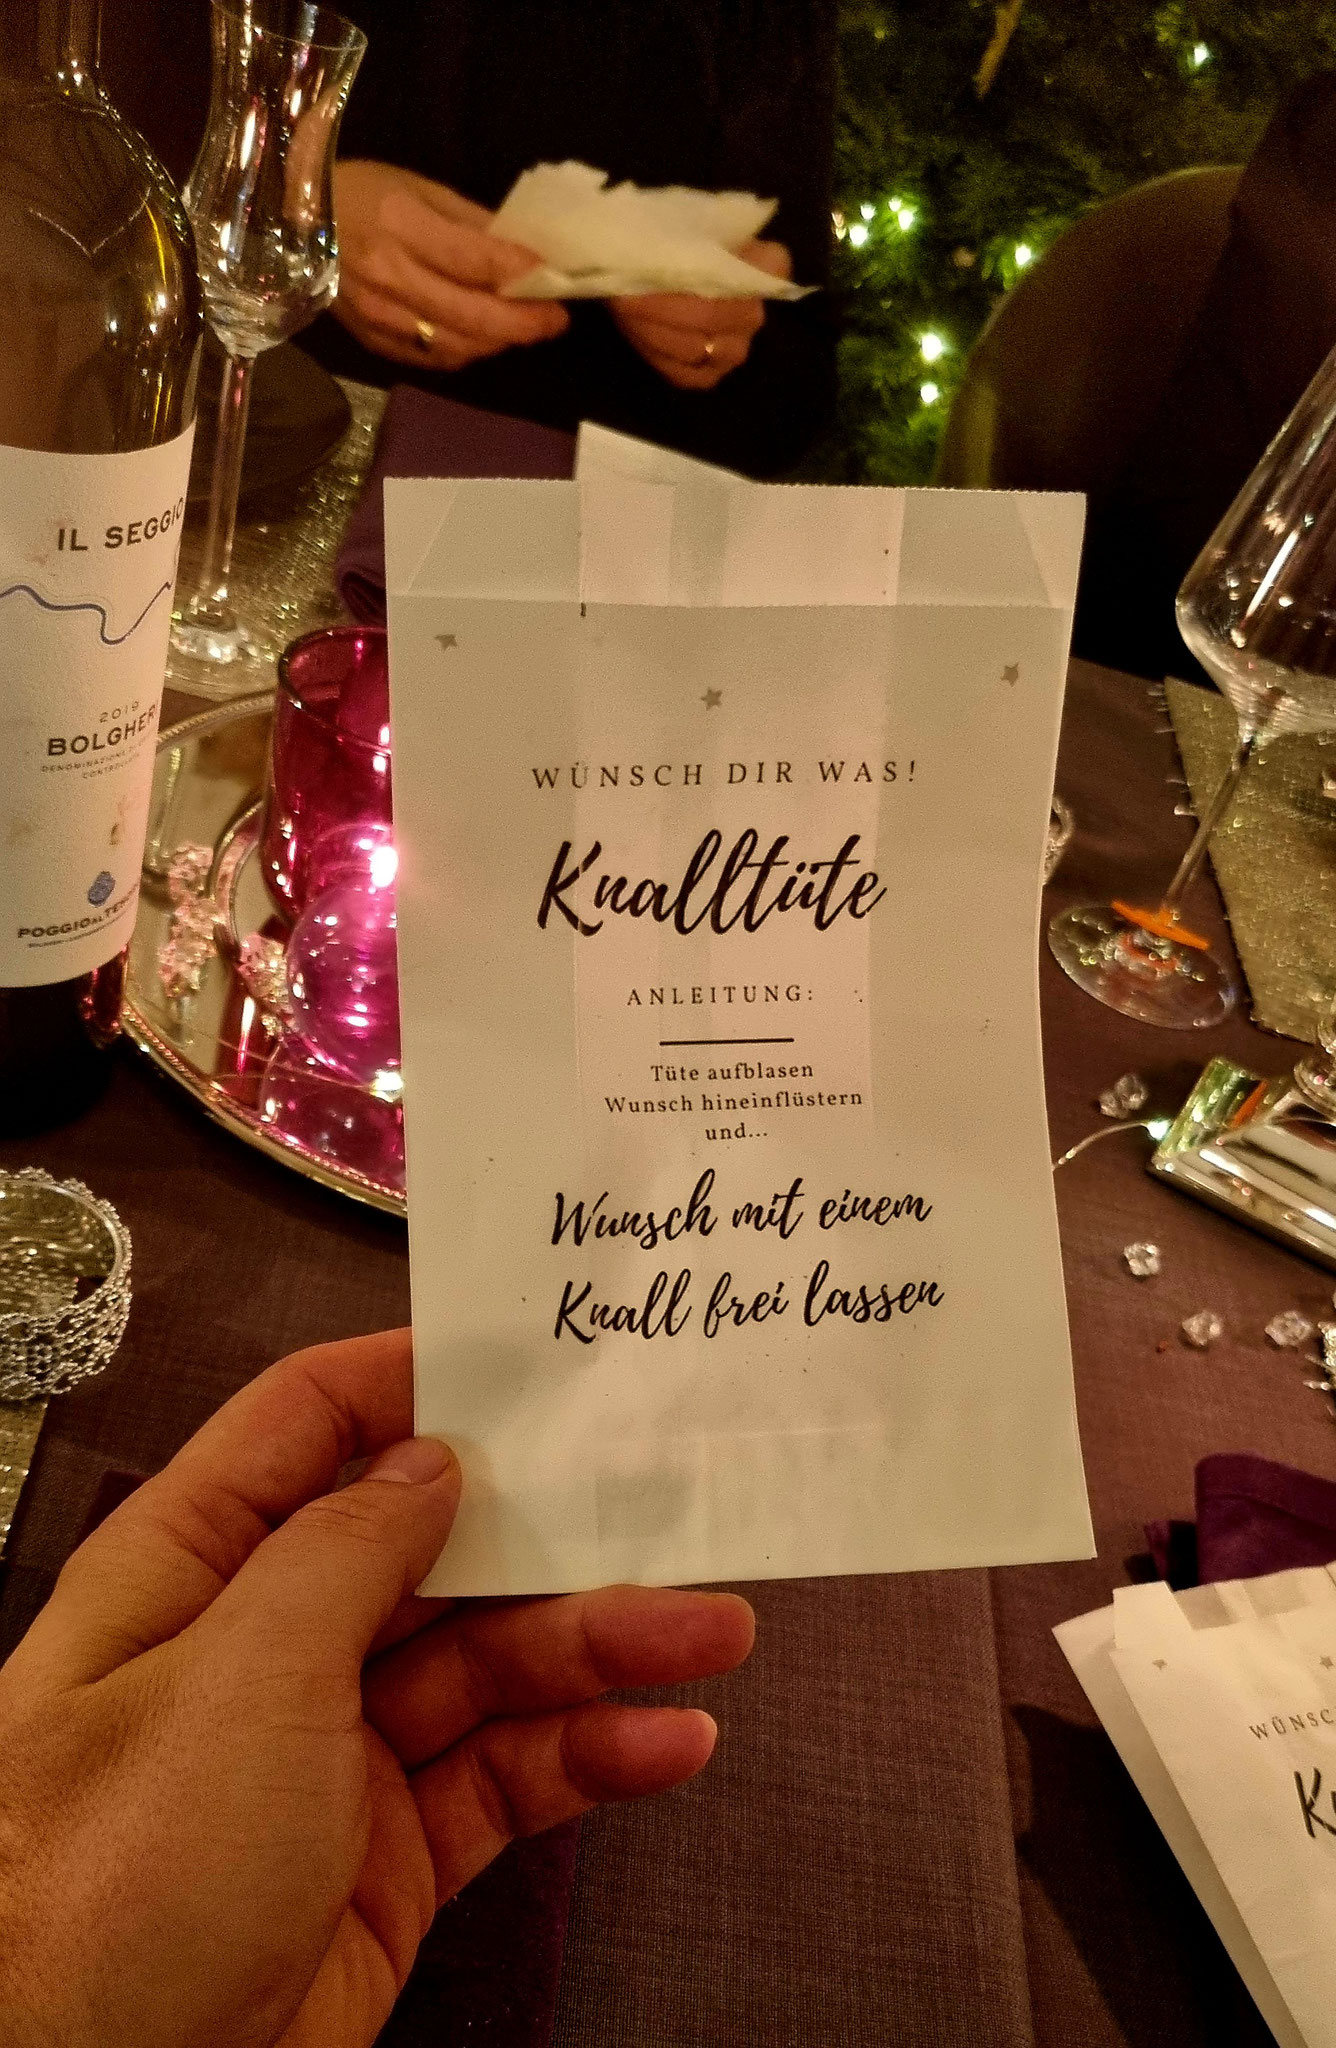 IL SEGGIO
2019
BOLGHERI
DENOMINAZIONE DI
CONTROLLATA
POGGIO AL
WÜNSCH DIR WAS!
Knalltüte
ANLEITUNG:
Tüte aufblasen
Wunsch hineinflüstern
und...
Wunsch mit einem
Knall frei lassen
WÜNSC
Kn